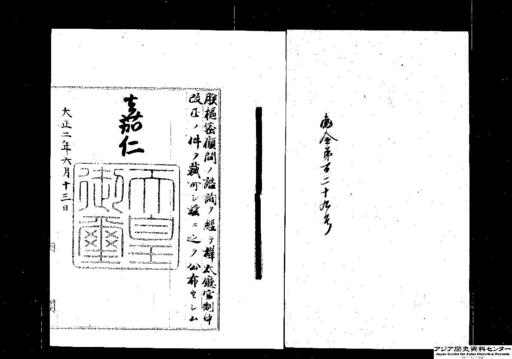 勅令第百二十九号
朕樞密顧問ノ諮詢ヲ經テ樺太廳官制中
改正ノ件ヲ裁可シ茲ニ之ヲ公布セシム
嘉仁
天皇御璽
大正二年六月十三日
アジア歴史資料センター
Japan Center for Asian Historical Records